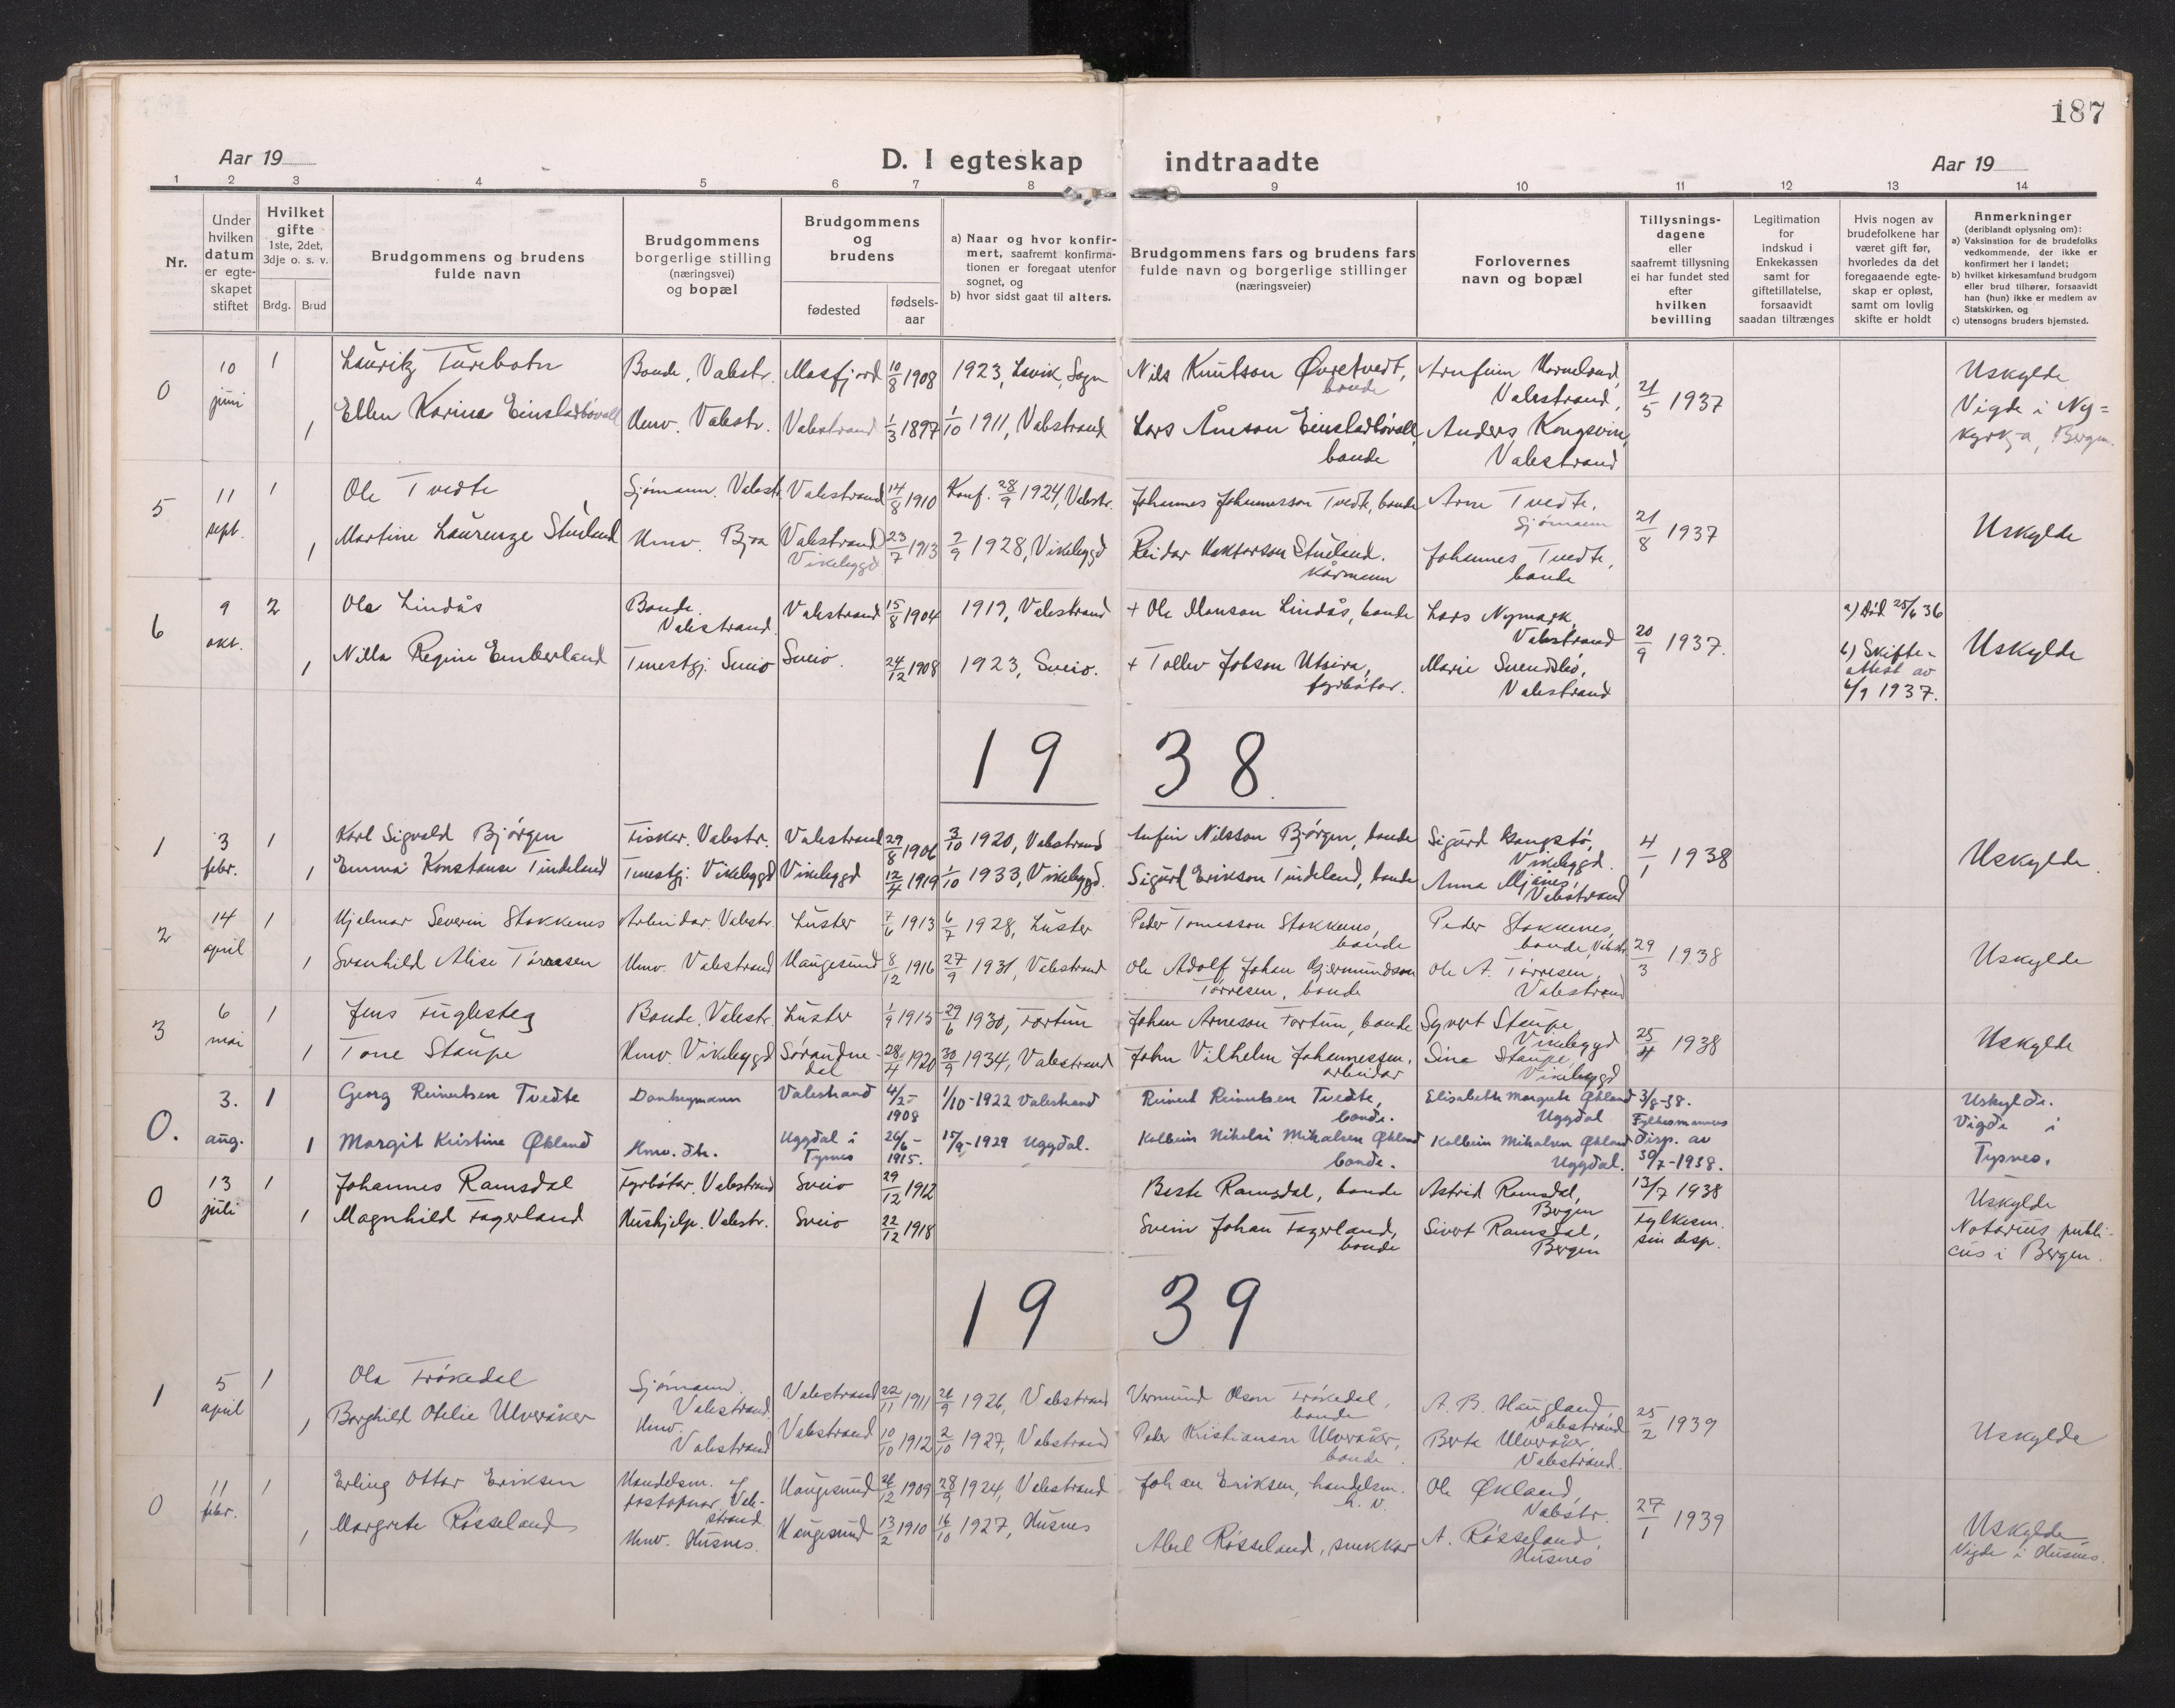 187
Aar 19
D. I egteskap indtraadte
Aar 19
1 2 3 4 5 6 7 8 9 10 11 12 13 14
Nr.
Under hvilken datum er egteskapet stiftet
Hvilket gifte 1ste, 2det, 3dje o. s. v.
Brdg. Brud
Brudgommens og brudens fulde navn
Brudgommens borgerlige stilling (næringsvei) og bopæl
Brudgommens og brudens
fødested
fødsels-aar
a) Naar og hvor konfirmert, saafremt konfirmationen er foregaat utenfor sognet, og
b) hvor sidst gaat til alters.
Brudgommens fars og brudens fars fulde navn og borgerlige stillinger (næringsveier)
Forlovernes navn og bopæl
Tillysningsdagene eller saafremt tillysning ei har fundet sted efter hvilken bevilling
Legitimation for indskud i Enkekassen samt for giftetillatelse, forsaavidt saadan tiltrænges
Hvis nogen av brudefolkene har været gift før, hvorledes da det foregaaende egteskap er opløst, samt om lovlig skifte er holdt
Anmerkninger (deriblandt oplysning om):
a) Vaksination for de brudefolks vedkommende, der ikke er konfirmert her i landet;
b) hvilket kirkesamfund brudgom eller brud tilhører, forsaavidt han (hun) ikke er medlem av Statskirken, og
c) utensogns bruders hjemsted.
0 10 juni 1 Lauritz Turebotn Bonde, Valestr. Masfjord 10/8 1908 1923, Lavik, Sogn Nils Knutson Øvretvedt, bonde Arnfinn Valestrand, 21/5 1937 Uskylde Vigde i Nykyrkja, Bergen.
1 Ellen Karina Hmv. Valestr. Valestrand 1/3 1897 1/10 1911, Valestrand Lars Åmson bonde Anders Kongsvin, Valestrand
5 11 sept. 1 Ole Tvedte Sjømann. Valestr. Valestrand 14/8 1910 Konf. 28/9 1924, Valestr. Johannes Johannesson Tvedte, bonde Arne Tvedte, Sjømann 21/8 1937 Uskylde
1 Martine Laurenze Stueland Hmv. Bjoa (Valestrand) Vikebygd 23/7 1913 2/9 1928, Vikebygd Reidar Stueland. kårmann Johannes Tvedte, bonde
6 9 okt. 2 Ola Lindås Bonde. Valestrand. Valestrand 15/8 1904 1919, Valestrand + Ole Monson Lindås, bonde Lars Nymark, Valestrand 20/9 1937. a) Død 25/6 36 b) Skifteattest av 6/9 1937. Uskylde
1 Nilla Regine Emberland Tenestgj. Sveio Sveio. 24/12 1908 1923, Sveio. + Tollev Jobson Utsira, fyrbøtar. Marie Svendsbø, Valestrand
1938.
1 3 febr. 1 Karl Sigvald Bjørgen Fiskar. Valestr. Valestrand 29/8 1906 3/10 1920, Valestrand Anfin Nilsson Bjørgen, bonde Sigurd Vikebygd. 4/1 1938 Uskylde.
1 Emma Konstanse Tindeland Tenestgj. Vikebygd Vikebygd 12/4 1919 1/10 1933, Vikebygd. Sigurd Erikson Tindeland, bonde Anna Mjånes, Valestrand
2 14 april 1 Hjalmar Severin Stokkenes Arbeidar. Valestr. Luster 7/6 1913 6/7 1928, Luster Peder Tomesson Stokkenes, bonde Peder Stokkenes, bonde, Valestr. 29/3 1938 Uskylde
1 Svanhild Alise Tørresen Hmv. Valestrand Haugesund 8/12 1916 27/9 1931, Valestrand Ole Adolf Johan Gjermundson Tørresen, bonde Ole A. Tørresen, Valestrand
3 6 mai 1 Jens Fuglesteg Bonde, Valestr. Luster 1/9 1915 29/6 1930, Fortun Johan Arneson Fortun, bonde Syvert Staupe, Vikebygd 25/4 1938 Uskylde
1 Tone Staupe Hmv. Vikebygd 28/4 1920 30/9 1934, Valestrand John Vilhelm Johannessen, arbeidar Sina Staupe, Vikebygd
0. 3. aug. 1 Georg Reinertsen Tvedte Donkeymann Valestrand 4/2- 1908 1/10-1922 Valestrand Reinert Reinertsen Tvedte, bonde. Elisabeth Margrete Økland Uggdal 3/8-38. Fylkesmannens disp. av 30/7-1938. Uskylde. Vigde i Tysnes.
1 Margit Kristine Økland Hmv. dtr. Uggdal i Tysnes 26/6- 1915. 15/9-1929 Uggdal. Kolbein Nikolai Mikalsen Økland bonde. Kolbein Mikalsen Økland Uggdal.
0 13 juli 1 Johannes Ramsdal Fyrbøtar. Valestrand Sveio 29/12 1912 Ramsdal, bonde Astrid Ramsdal, Bergen 13/7 1938 Fylkesm. sin disp. Uskylde Notarius publicus i Bergen.
1 Magnhild Fagerland Hushjelp. Valestr. Sveio 22/12 1918 Svein Johan Fagerland, bonde Sivert Ramsdal, Bergen
1939
1 5 april 1 Ola Frøkedal Sjømann. Valestrand. Valestrand 22/11 1911 26/9 1926, Valestrand Vermund Olson Frøkedal, bonde A. B. Haugland, Valestrand 25/2 1939 Uskylde
1 Borghild Otelie Ulveråker Hmv. Valestrand Valestrand 10/10 1912 2/10 1927, Valestrand Peder Kristianson Ulveråker, bonde. Berta Ulveråker, Valestrand.
0 11 febr. 1 Erling Ottar Eriksen Handelsm. og postopnar Valestrand. Haugesund 26/12 1909 28/9 1924, Valestrand Johan Eriksen, handelsm. h. v. Ole Økland, Valestr. 27/1 1939 Uskylde Vigde i Husnes.
1 Margrete Røsseland Hmv. Husnes. Haugesund 13/2 1910 16/10 1927, Husnes Abel Røsseland, snekkar A. Røsseland, Husnes